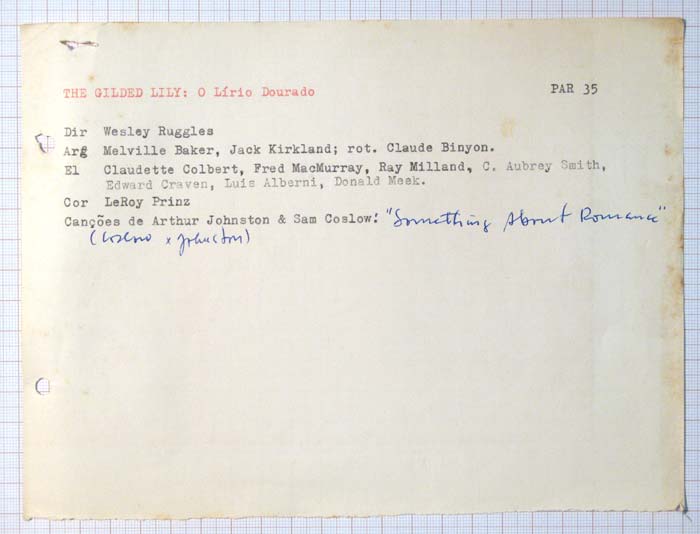 THE GILDED LILY: O Lírio Dourado PAR 35
Dir Wesley Ruggles
Arg Melville Baker, Jack Kirkland; rot. Claude Binyon.
El Claudette Colbert, Fred MacMurray, Ray Milland, C. Aubrey Smith,
Edward Craven, Luis Alberni, Donald Meek.
Cor LeRoy Prinz
Canções de Arthur Johnston & Sam Coslow: "Something About Romance"
(Coslow x Johnston)